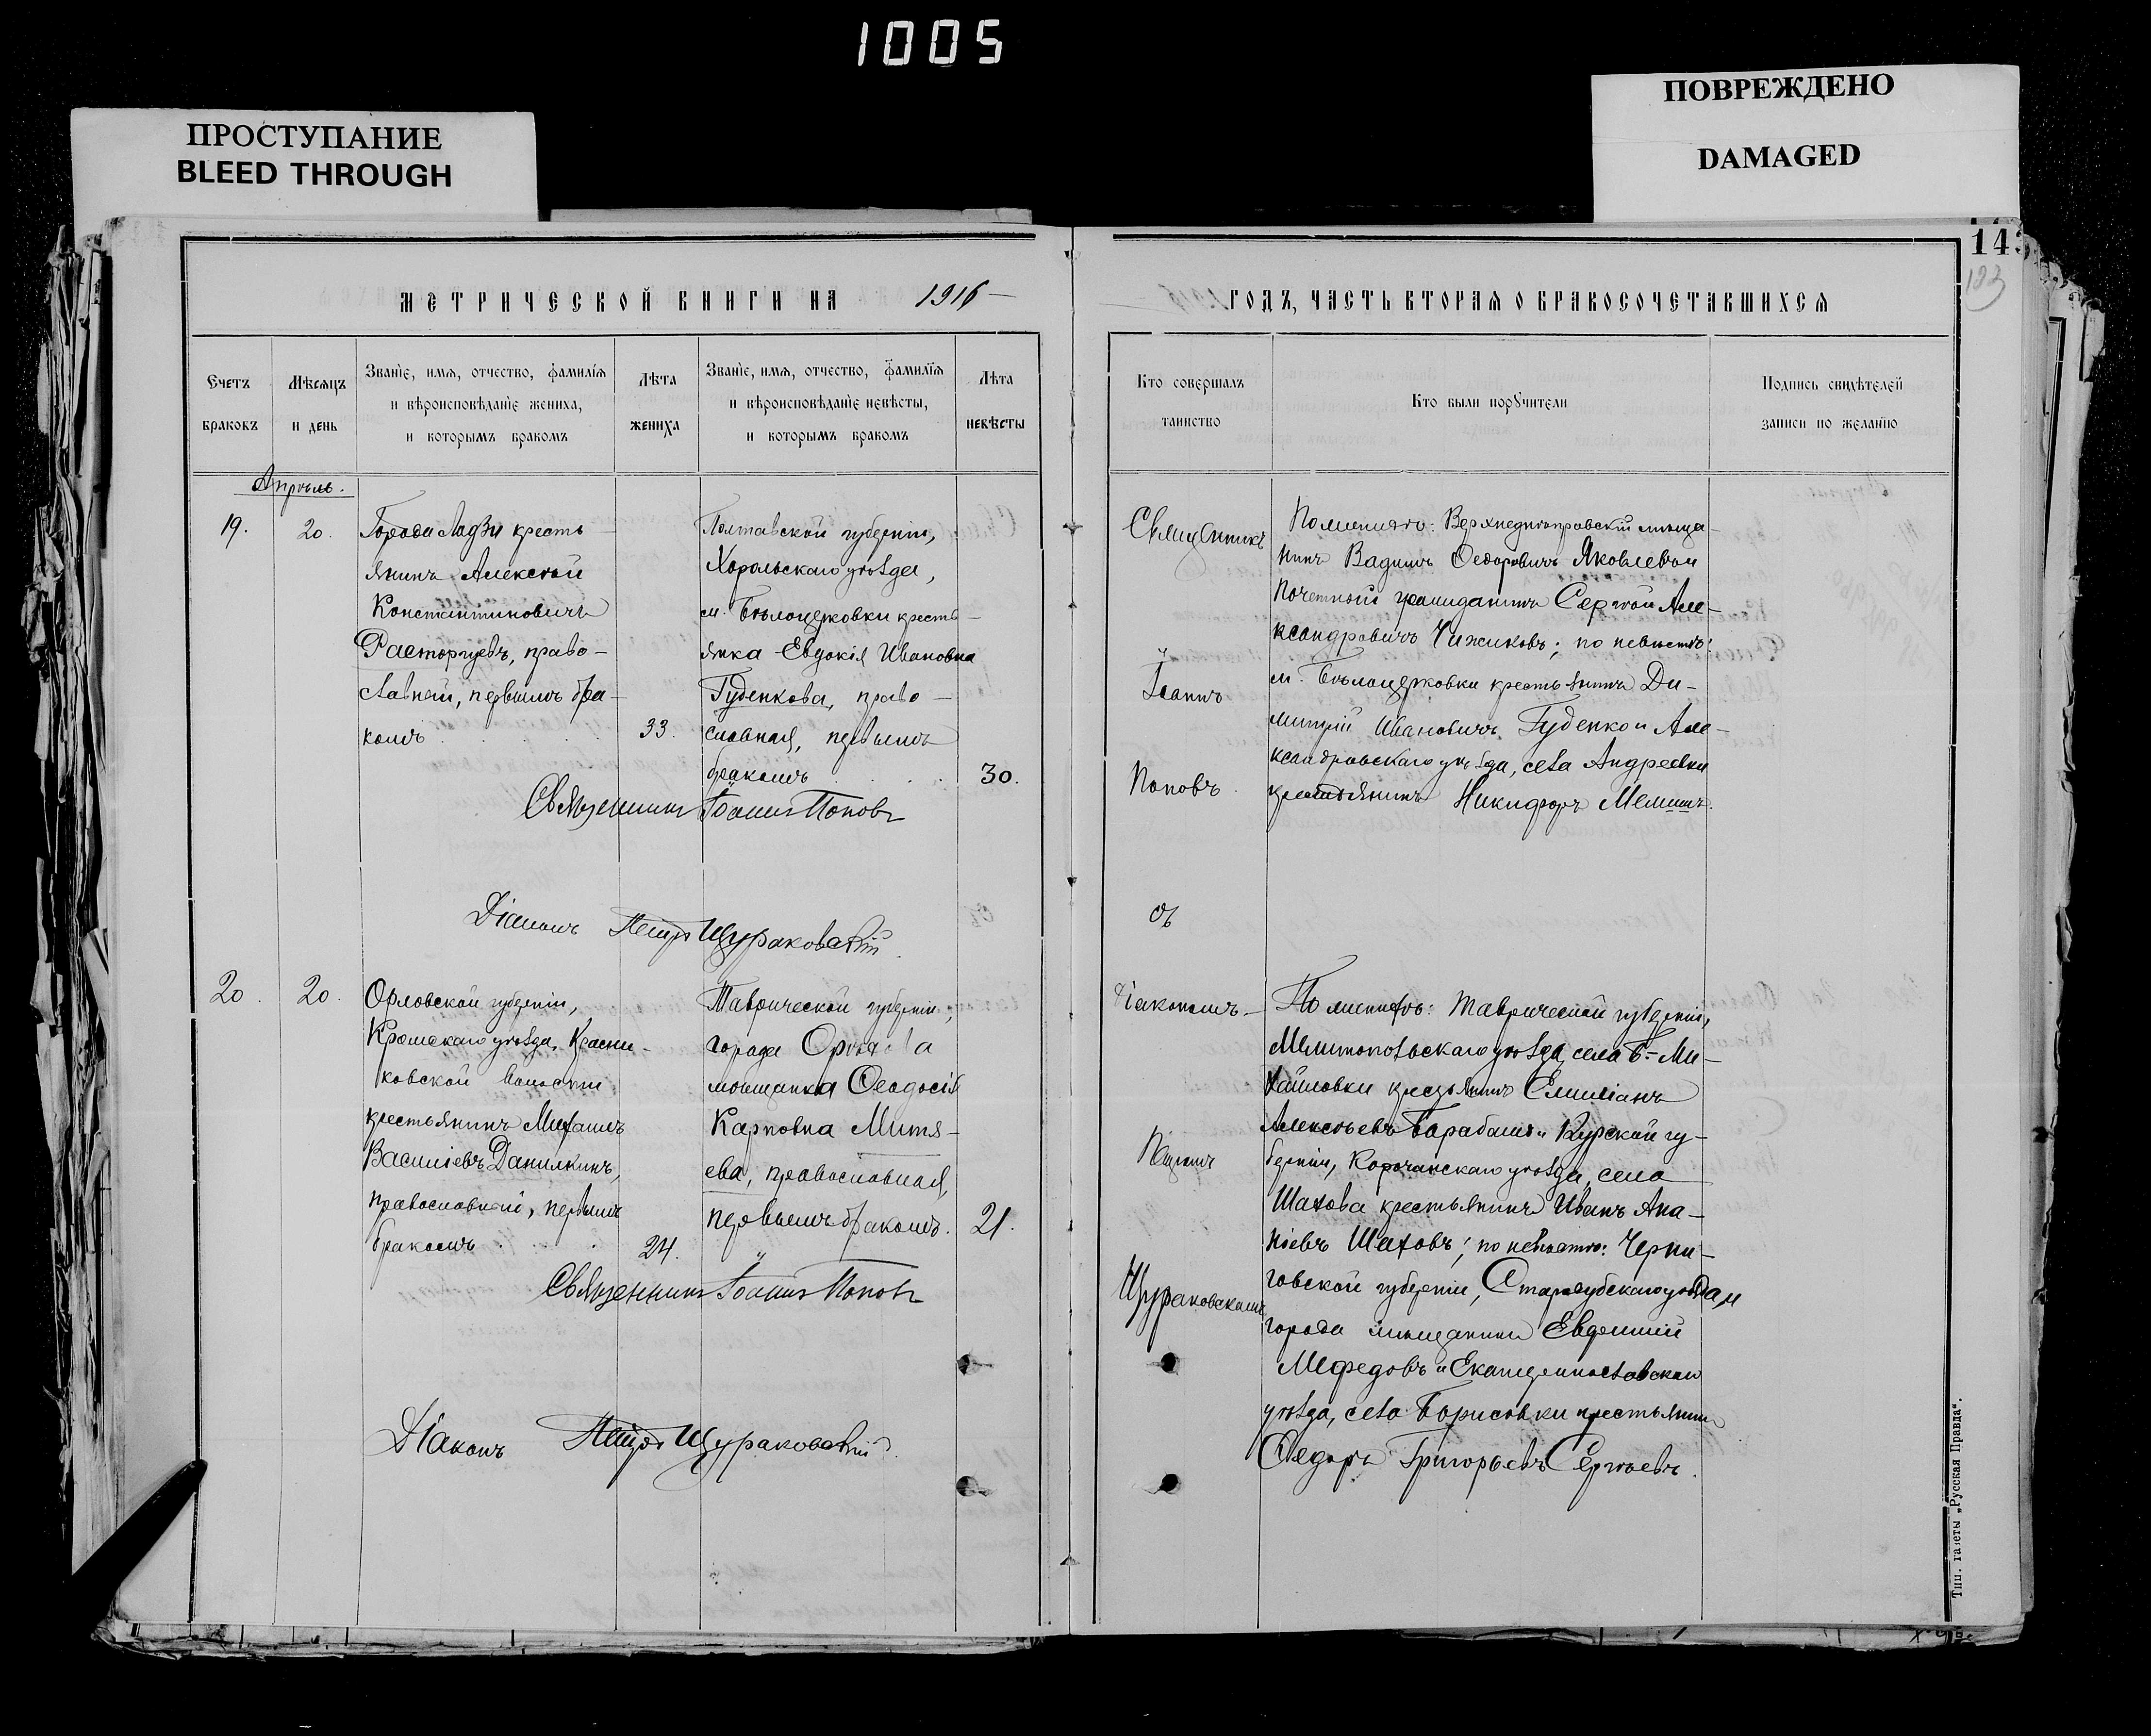 1005
ПРОСТУПАНИЕ
BLEED THROUGH
ПОВРЕЖДЕНО
DAMAGED
143
193
МЕТРИЧЕСКОЙ КНИГИ НА 1916
Счетъ браковъ
Мѣсяцъ и день
Званіе, имя, отчество, фамилія
и вѣроисповѣданіе жениха,
и которымъ бракомъ
Лѣта жениха
Званіе, имя, отчество, фамилія
и вѣроисповѣданіе невѣсты,
и которымъ бракомъ
Лѣта невѣсты
Апрѣль.
19.
20.
Города Лодзи кресть
янинъ Алексѣй
Константиновичъ
Расторгуевъ, право-
славный, первымъ бра-
комъ
33.
Полтавской губерніи,
Хорольскаго уѣзда,
м. Бѣлоцерковки кресть-
янка Евдокія Ивановна
Гуденкова, право-
славная, первымъ
бракомъ
30.
Священникъ Іоаннъ Поповъ
Діаконъ Петръ Щураковскій.
20.
20.
Орловской губерніи,
Кромскаго уѣзда,
ковской волости
крестьянинъ Михаилъ
Василіевъ Данилкинъ,
православный, первымъ
бракомъ
24.
Таврической губерніи,
города Орѣхова
мѣщанка Ѳеодосія
Карповна Митя-
ева, православная,
первымъ бракомъ.
21.
Священникъ Іоаннъ Поповъ
Діаконъ Петръ Щураковскій.
ГОДЪ, ЧАСТЬ ВТОРАЯ О БРАКОСОЧЕТАВШИХСЯ
Кто совершалъ
таинство
Кто были поручители
Подпись свидѣтелей
записи по желанію
Священникъ
Іоаннъ
Поповъ
съ
діакономъ
Петромъ
Щураковскимъ
По женихѣ: Верхнеднѣпровскій мѣща-
нинъ Вадимъ Ѳедоровичъ Яковлевъ и
Почетный гражданинъ Сергѣй Але-
ксандровичъ Чижиковъ; по невѣстѣ:
м. Бѣлоцерковки крестьянинъ Ди-
митрій Ивановичъ Гуденко и Але-
ксандровскаго уѣзда, села Андреевки
крестьянинъ Никифоръ
По женихѣ: Таврической губерніи,
Мелитопольскаго уѣзда, села Б.-Ми-
хайловки крестьянинъ Емиліанъ
Алексѣевъ Барабашъ и Курской гу-
берніи, Корочанскаго уѣзда, села
Шахова крестьянинъ Иванъ Ана-
ніевъ Шаховъ; по невѣстѣ: Черни-
говской губерніи, Стародубскаго уѣзда, и
города мѣщанинъ Евфимій
Мефедовъ и Екатеринославскаго
уѣзда, села Борисовки крестьянинъ
Ѳедоръ Григорьевъ Сергѣевъ.
Тип. газеты „Русская Правда“.